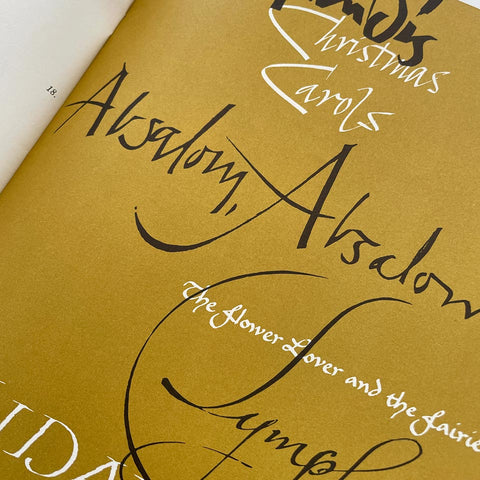 18.
Christmas
Carols
Absalom, Absalom
The Flower Lover and the Fairie
Symph
IDA